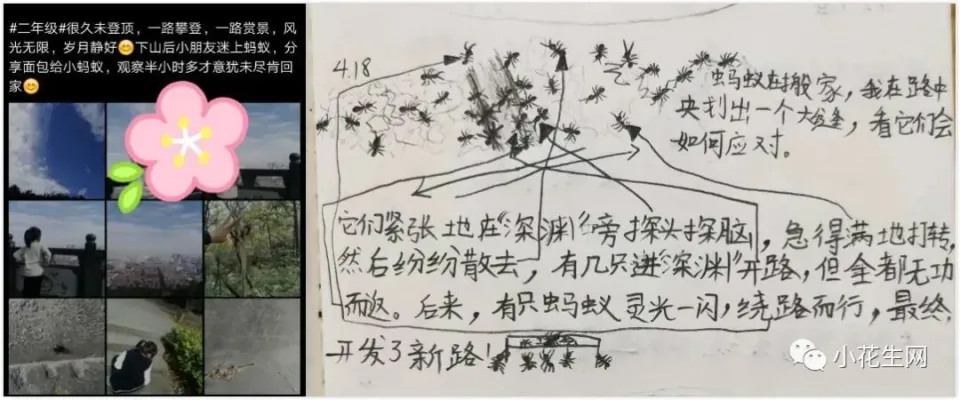 #二年级#很久未登顶，一路攀登，一路赏景，风
光无限，岁月静好😊下山后小朋友迷上蚂蚁，分
享面包给小蚂蚁，观察半小时多才意犹未尽肯回
家😊
4.18
蚂蚁在搬家，我在路中
央划出一个大
看它们会
如何应对。
它们紧张地在“深渊”旁探头探脑，急得满地打转，
然后纷纷散去，有几只进“深渊”开路，但全都无功
而返。后来，有只蚂蚁灵光一闪，绕路而行，最终
开发了新路！
小花生网